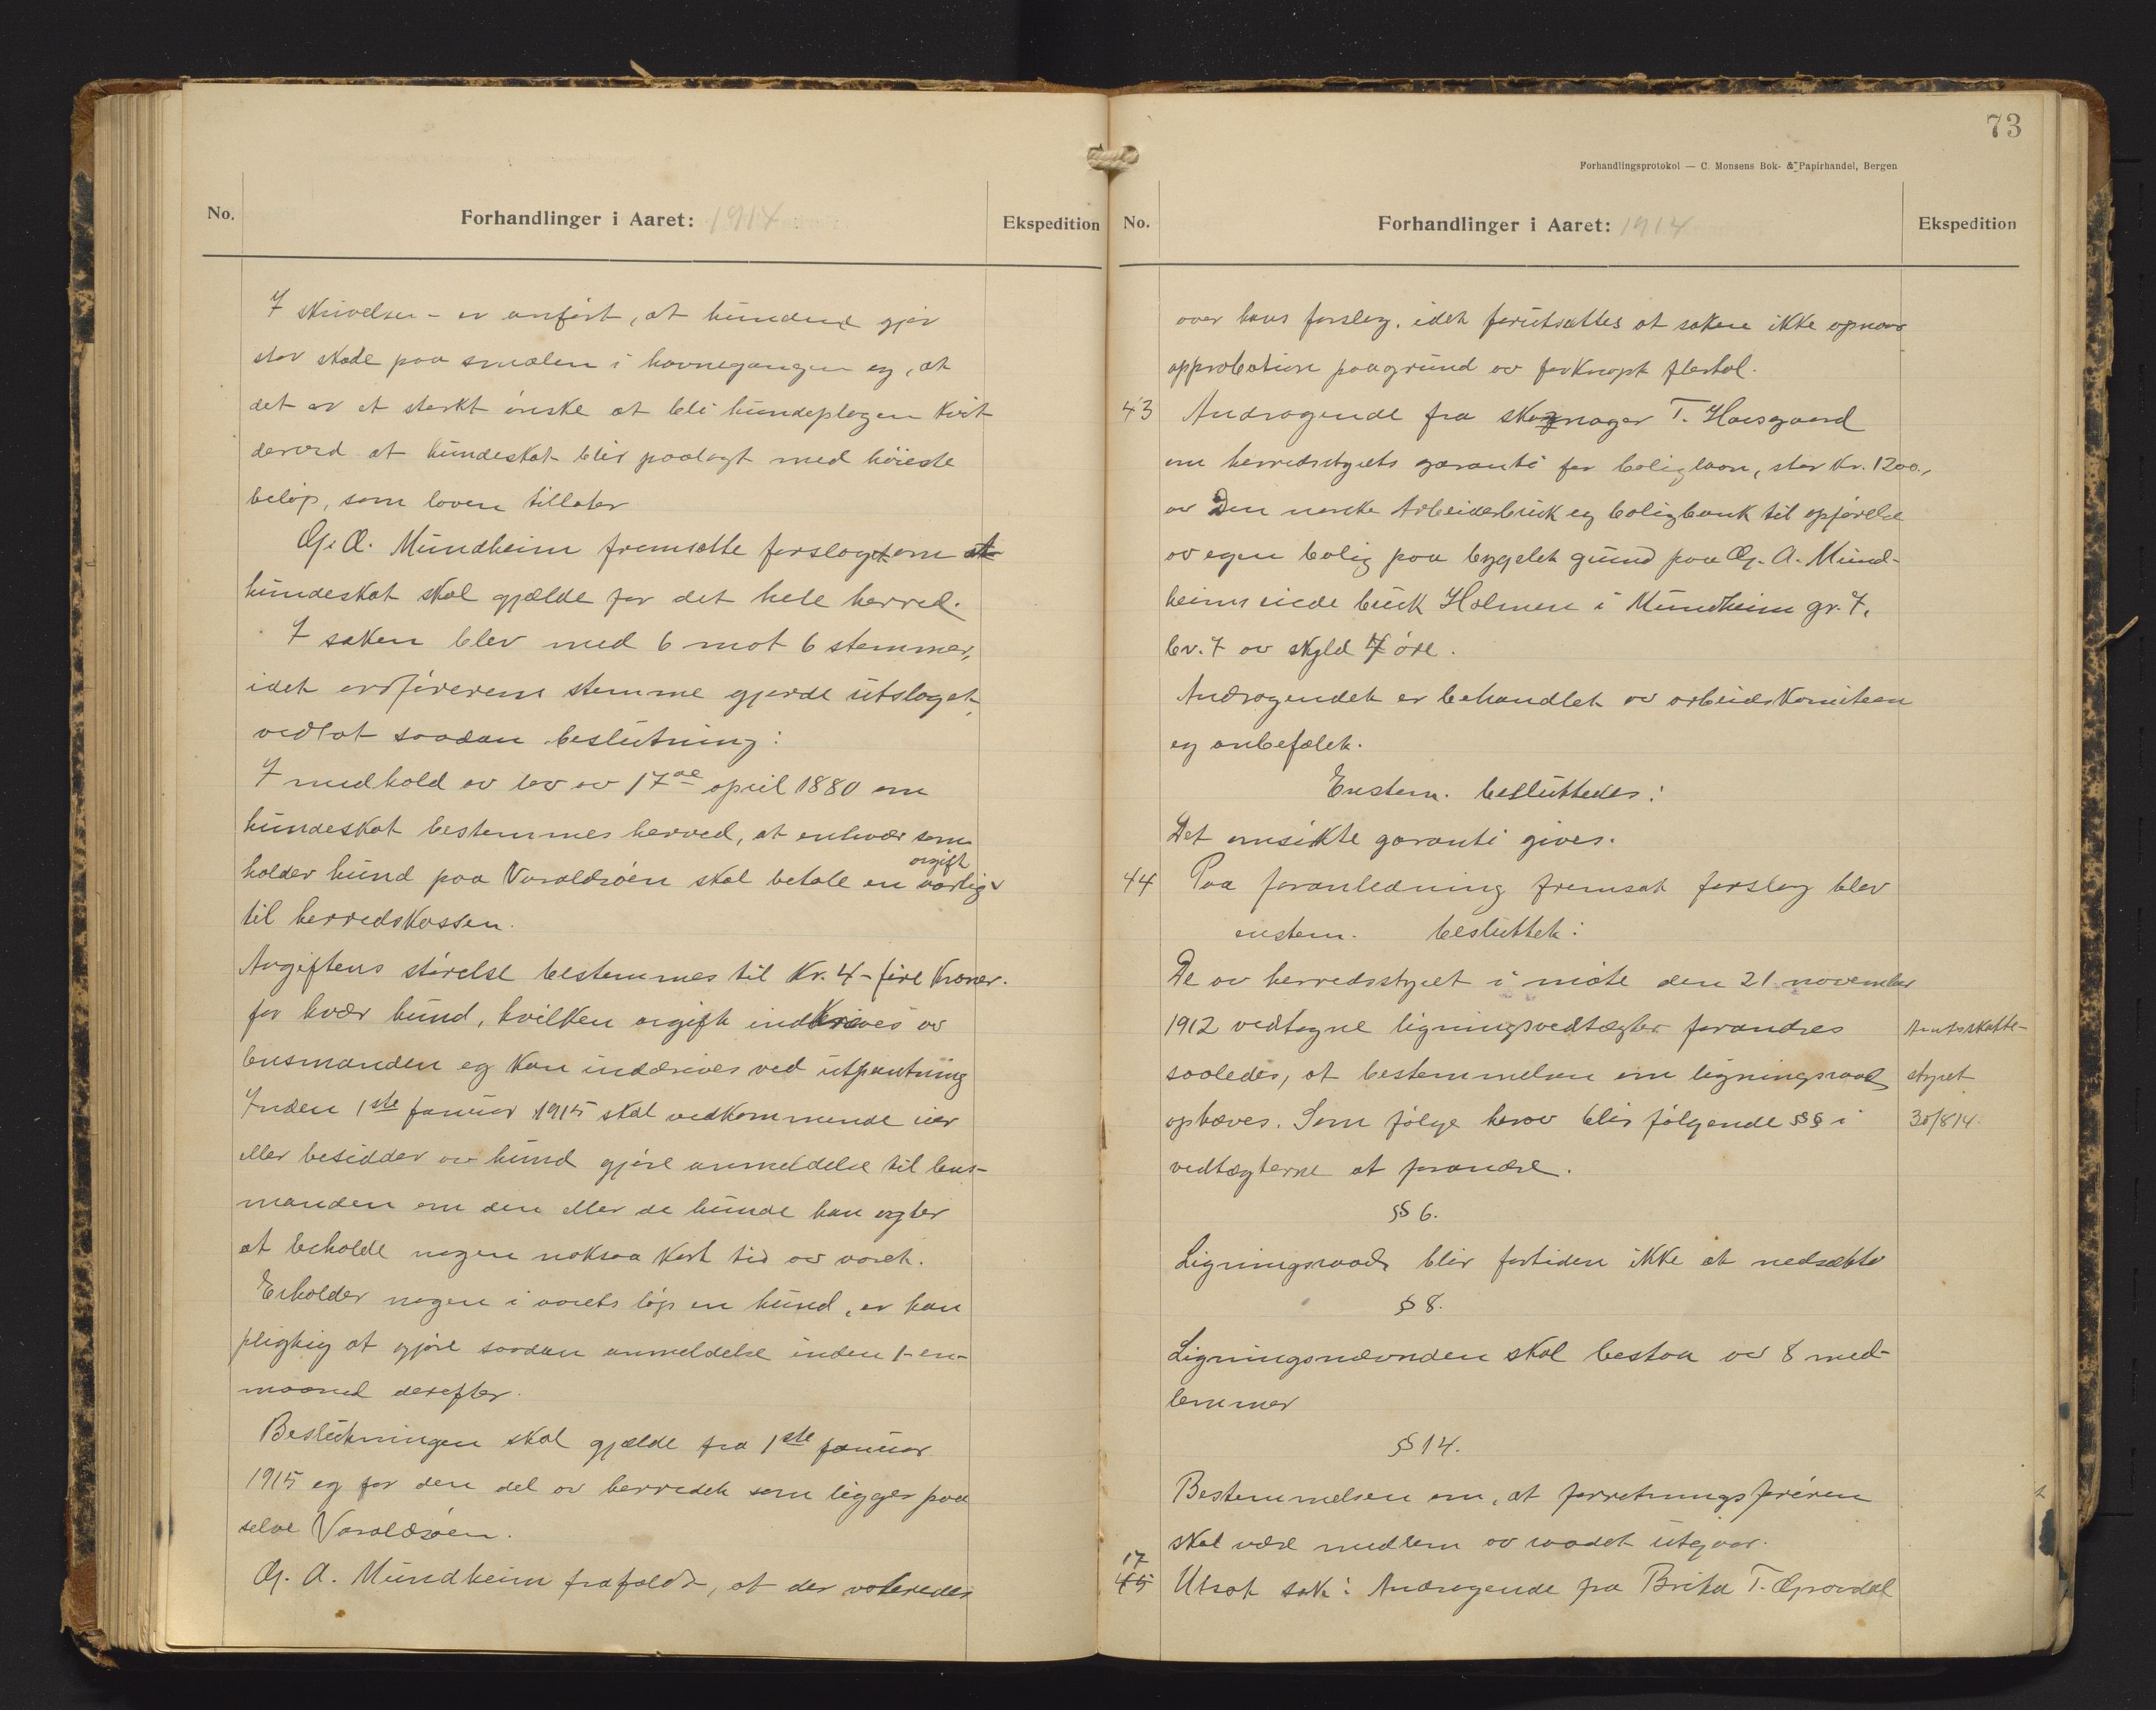 No.
Forhandlinger i Aaret: 1914
Ekspedition
I skrivelsen - er anført, at hundene gjør
stor skade paa smalen i havnegangen og, at
det er et sterkt ønske at bli hundeplagen kvit
derved at hundeskat blir paalagt med høieste
beløp, som loven tillater
G. A. Mundheim fremsatte forslag om at
hundeskat skal gjælde for det hele herred.
I saken blev med 6 mot 6 stemmer,
idet ordførerens stemme gjorde utslaget,
vedtat saadan beslutning:
I medhold av lov av 17de april 1880 om
hundeskat bestemmes herved, at enhver som
holder hund paa Varaldsøen skal betale en aarlig avgift
til herredskassen.
Avgiftens størelse bestemmes til Kr. 4 - fire kroner.
for hver hund, hvilken avgift indkræves av
lensmanden og kan inddrives ved utpantning
Inden 1ste januar 1915 skal vedkommende eier
eller besidder av hund gjøre anmeldelse til lens-
manden om den eller de hunde han agter
at beholde nogen noksaa kort tid av aaret.
Erholder nogen i aarets løp en hund, er han
pligtig at gjøre saadan anmeldelse inden 1-en-
maaned derefter.
Beslutningen skal gjælde fra 1ste januar
1915 og for den del av herredet som ligger paa
selve Varaldsøen.
G. A. Mundheim frafaldt, at der voteredes
73
Forhandlingsprotokol — C. Monsens Bok- & Papirhandel, Bergen
No.
Forhandlinger i Aaret: 1914
Ekspedition
over hans forslag, idet forutsættes at saken ikke opnaar
approbation paagrund av forknapt flertal.
43 Andragende fra skomager T. Havsgaard
om herredsstyrets garanti for boliglaan, stor kr. 1200,
av Den norske Arbeiderbruk og boligbank til opførelse
av egen bolig paa bygslet grund paa G. A. Mund-
heims eiede bruk Holmen i Mundheim gr. 7,
br. 7 av skyld 7 øre.
Andragendet er behandlet av arbeidskomiteen
og anbefalet.
Enstem. besluttedes:
Det omsøkte garanti gives.
44 Paa foranledning fremsat forslag blev
enstem. besluttet:
De av herredsstyret i møte den 21 november
1912 vedtagne ligningsvedtægter forandres
saaledes, at bestemmelsen om ligningsraad
ophæves. Som følge herav blir følgende §§ i
vedtægterne at forandre.
Amtsskatte-
styret
30/8 14.
§ 6.
Ligningsraad blir fortiden ikke at nedsætte
§ 8.
Ligningsnævnden skal bestaa av 8 med-
lemmer
§ 14.
Bestemmelsen om, at forretningsføreren
skal være medlem av raadet utgaar.
17
45 Utsat sak: Andragende fra Brita T. Gravdal